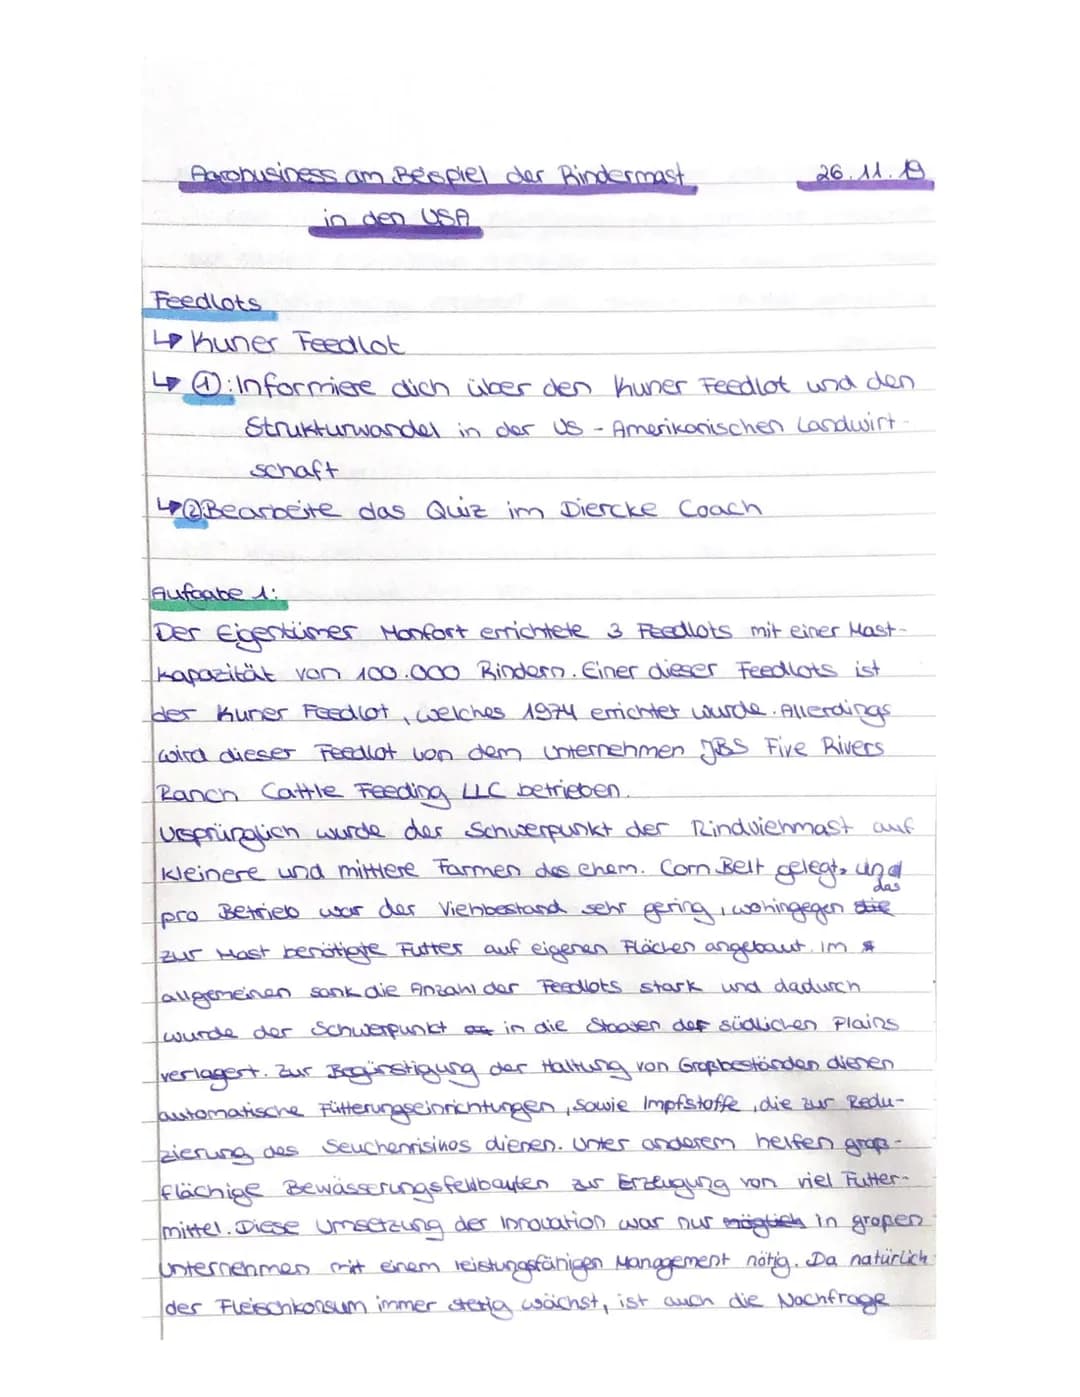 Agrobusiness am Beispiel der Rindermast 26.11.19
in den USA
Feedlots
↳ Kuner Feedlot
↳ ①: Informiere dich über den Kuner Feedlot und den
Strukturwandel in der US - Amerikanischen Landwirt-
schaft
↳ ② Bearbeite das Quiz im Diercke Coach
Aufgabe 1:
Der Eigentümer Monfort errichtete 3 Feedlots mit einer Mast-
kapazität von 100.000 Rindern. Einer dieser Feedlots ist
der Kuner Feedlot, welches 1974 errichtet wurde. Allerdings
wird dieser Feedlot von dem Unternehmen JBS Five Rivers
Ranch Cattle Feeding LLC betrieben.
Ursprünglich wurde der Schwerpunkt der Rindviehmast auf
kleinere und mittlere Farmen des ehem. Corn Belt gelegt, und
pro Betrieb war der Viehbestand sehr gering, wohingegen das
zur Mast benötigte Futter auf eigenen Flächen angebaut. im
allgemeinen sank die Anzahl der Feedlots stark und dadurch
wurde der Schwerpunkt in die Staaten der südlichen Plains
verlagert. Zur Begünstigung der Haltung von Großbeständen dienen
automatische Fütterungseinrichtungen, sowie Impfstoffe, die zur Redu-
zierung des Seuchenrisinos dienen. Unter anderem helfen groß-
flächige Bewässerungsfeldbauten zur Erzeugung von viel Futter-
mittel. Diese Umsetzung der Innovation war nur möglich in großen
Unternehmen mit einem leistungsfähigen Management nötig. Da natürlich
der Fleischkonsum immer stetig wächst, ist auch die Nachfrage